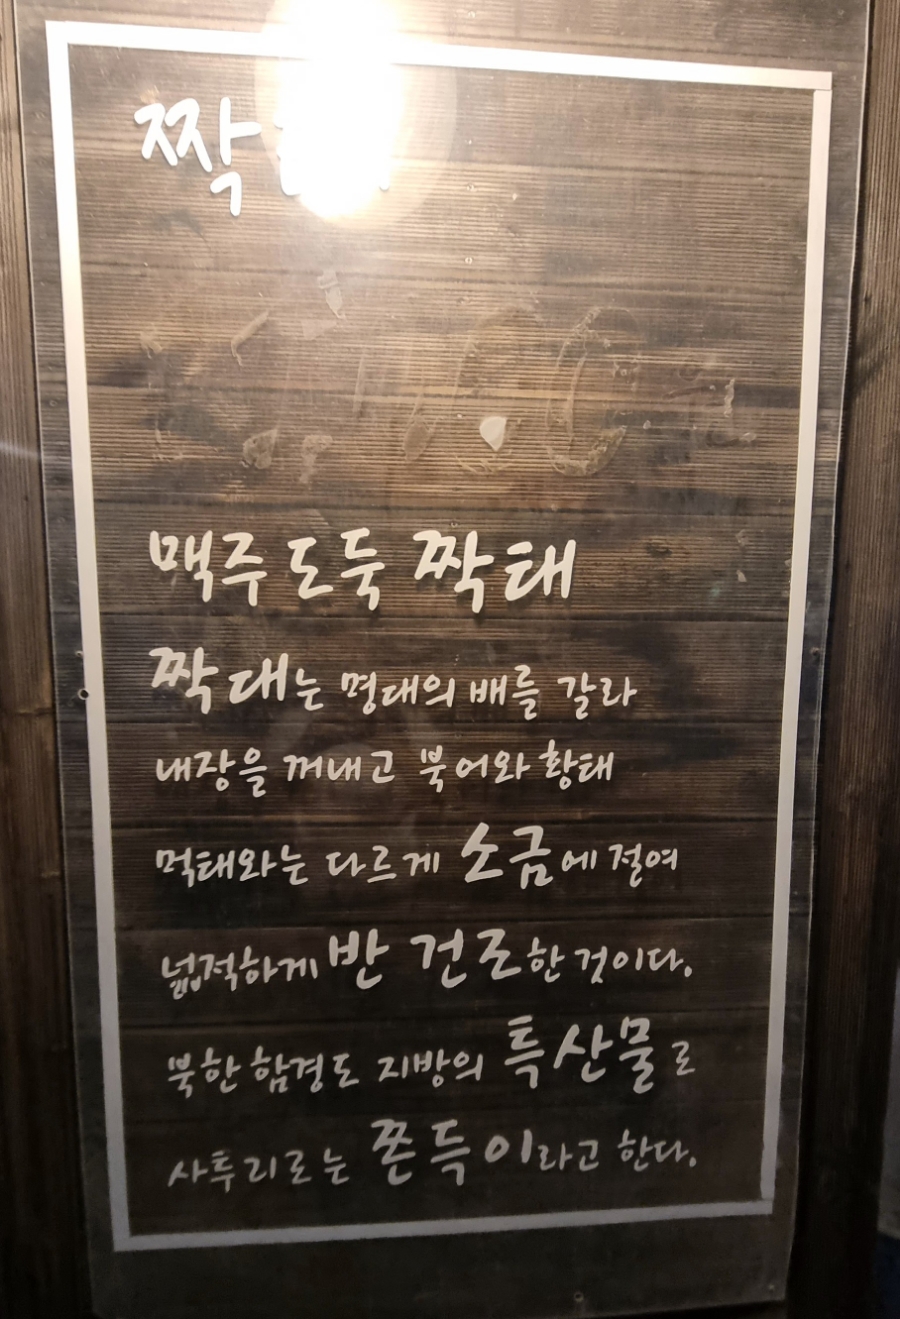 짝
맥주 도둑 짝태
짝대는 명대의 배를 갈라
내장을 꺼내고 북어와 황태
먹태와는 다르게 소금에 절여
넓적하게 반 건조한 것이다.
북한 함경도 지방의 특산물로
사투리로는 쫀득이라고 한다.